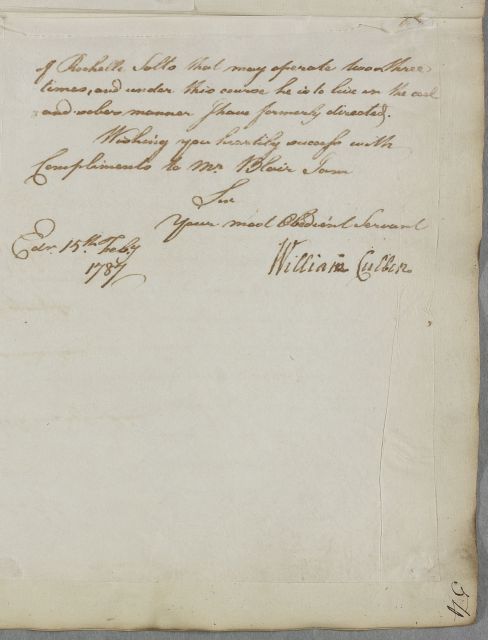 of Rochelle Salts that may operate two or three
times, and under this course he is to live in the cool
and sober manner I have formerly directed.
Wishing you heartily success with
Compliments to Mr. Blair I am
Sir
Your most Obedient Servant
Edr. 15th. Feby
1787
William Cullen
34